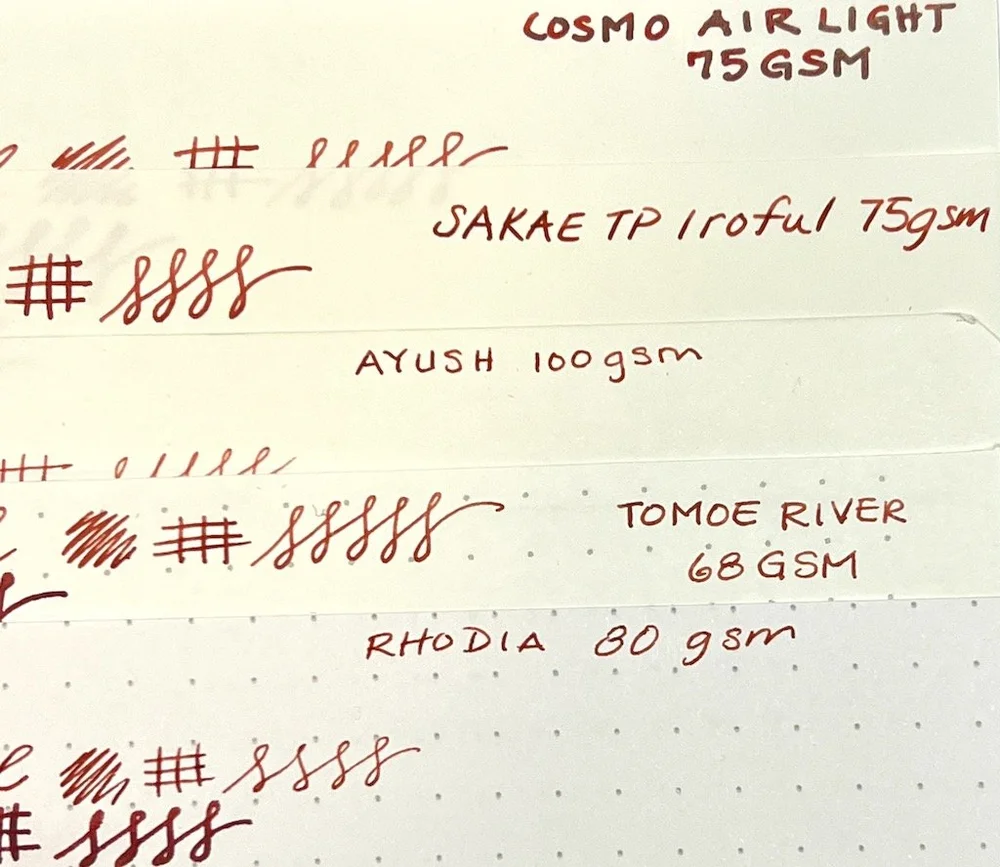 COSMO AIR LIGHT
75 GSM
SAKAE TP Iroful 75gsm
AYUSH 100gsm
TOMOE RIVER
68 GSM
RHODIA 80 gsm